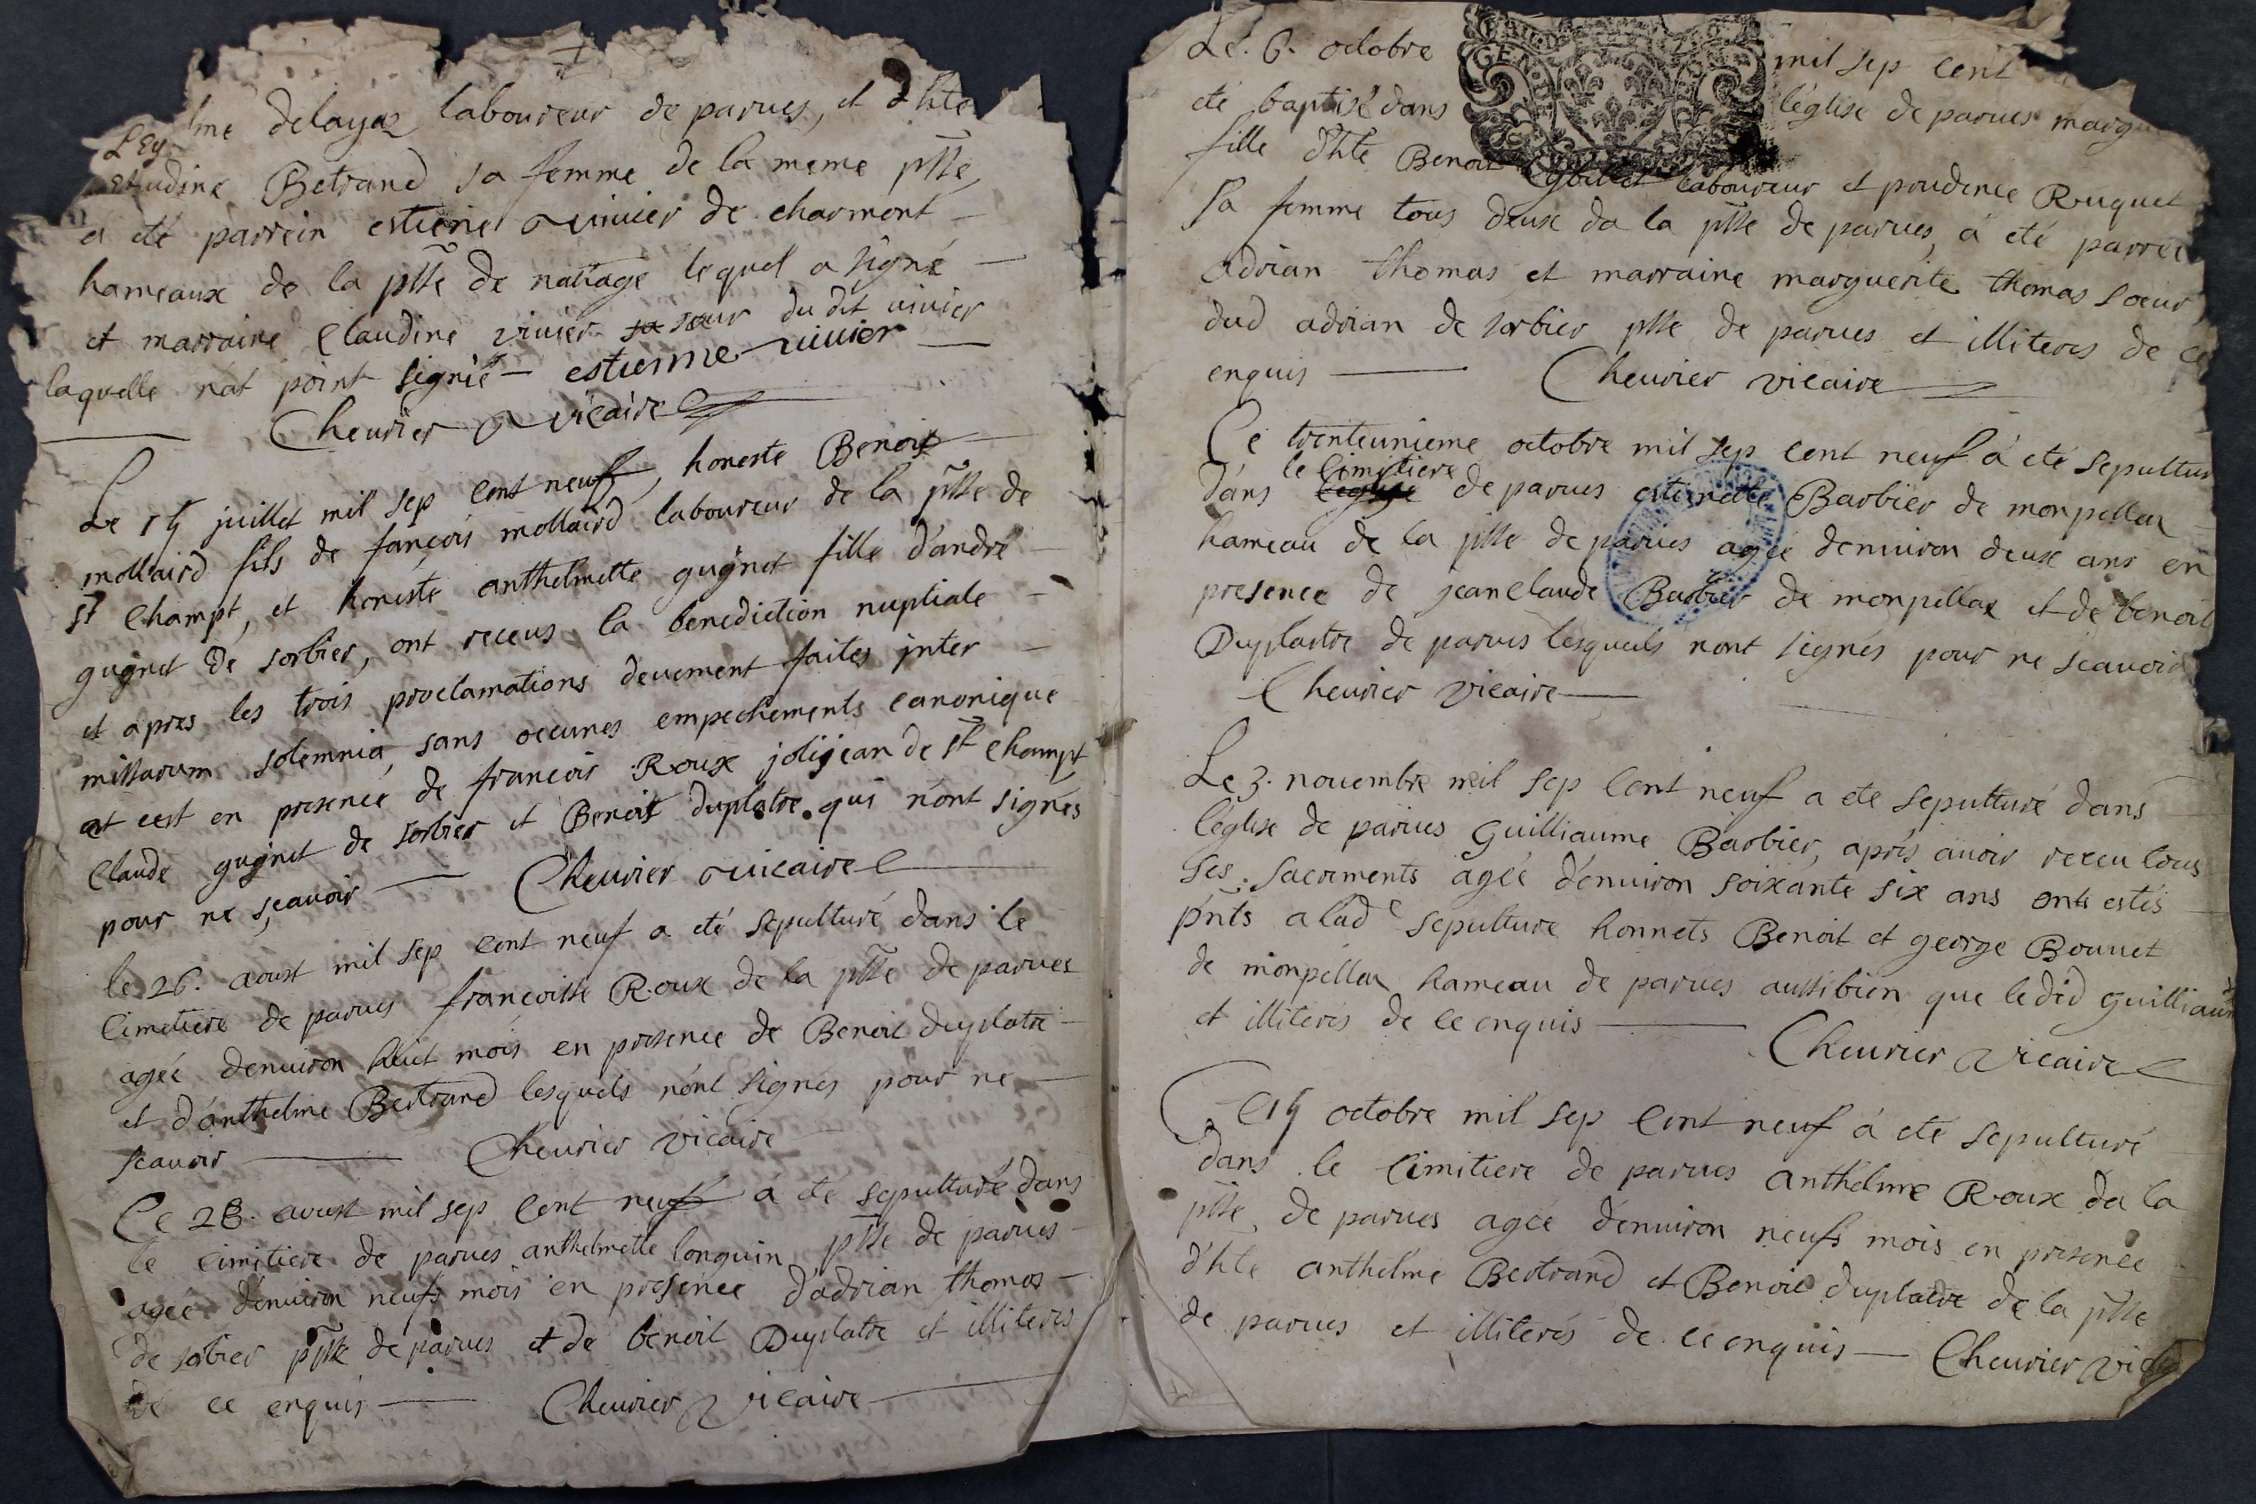 lme delayaz laboureur de parves, et d'hte
Claudine Betrand sa femme de la meme psse
a eté parrein estiene vivier de charmont
hameaux de la psse de natiage lequel a signé
et marraine Claudine vivier sœur du dit vivier
laquelle nat point signié estienne vivier
Chevrier vicaire
Le 14 juillet mil sep cent neuf, honeste Benoit
mollaird fils de françois mollaird laboureur de la psse de
st Champt, et honeste anthelmette gugnet fille d'andré
gugnet de sorbier, ont receus la benediction nuptiale
et apres les trois proclamations deuement faites jnter
missarum solemnia, sans occunes empechements canonique
et cest en presence de francois Roux jolijean de st Champt
Claude gugnet de sorbier et Benoit duplatre qui n'ont signés
pour ne sçavoir Chevrier vicaire
le 26. aoust mil sep cent neuf a eté sepulturé dans le
Cimetiere de parves françoisse Roux de la psse de parves
ageé denviron huit mois en presence de Benoit duplatre
et d'anthelme Bertrand lesquels n'ont signés pour ne
scavoir Chevrier vicaire
Ce 28. aoust mil sep Cent neuf a eté sepulturé dans
le cimitiere de parves anthelmette longuin psse de parves
ageé d'environ neufs mois en presence d'adrian thomas
de sorbier psse de parves et de benoit Duplatre et illiterés
de ce enquis Chevrier Vicaire
Le. 6. octobre mil sep cent
eté baptisé dans l'église de parves margu
fille d'hte Benoit laboureur et prudence Ruguet
sa femme tous deux da la psse de parves, a eté parrei
adrian thomas et marraine marguerite thomas soeur
dud adrian de sorbier psse de parves et illiteres de ce
enquis Chevrier vicaire
Ce trenteunieme octobre mil sep cent neuf a eté sepultur
dans le Cimitiere de parves etiennette Barbier de monpellaz
hameau de la psse de parves ageé denviron deux ans en
presence de jeanclaude Barbier de monpellaz et de benoit
Duplastre de parves lesquels nont signés pour ne scavoir
Chevrier vicaire
Le 3. novembre mil sep Cent neuf a ete sepulturé dans
l'église de parves Guilliaume Barbier, aprés avoir receu tous
ses sacrements ageé d'environ soixante six ans onts estés
pnts a lade sepulture honnets Benoit et george Bouvet
de monpellaz hameau de parves aussibien que ledid guilliaum
et illiterés de ce enquis Chevrier Vicaire
Ce 14 octobre mil sep Cent neuf a eté sepulturé
dans le Cimitiere de parves anthelme Roux da la
psse de parves ageé d'environ neufs mois en presence
d'hte anthelme Bertrand et Benoit duplatre de la psse
de parves et illiterés de ce enquis Chevrier vic